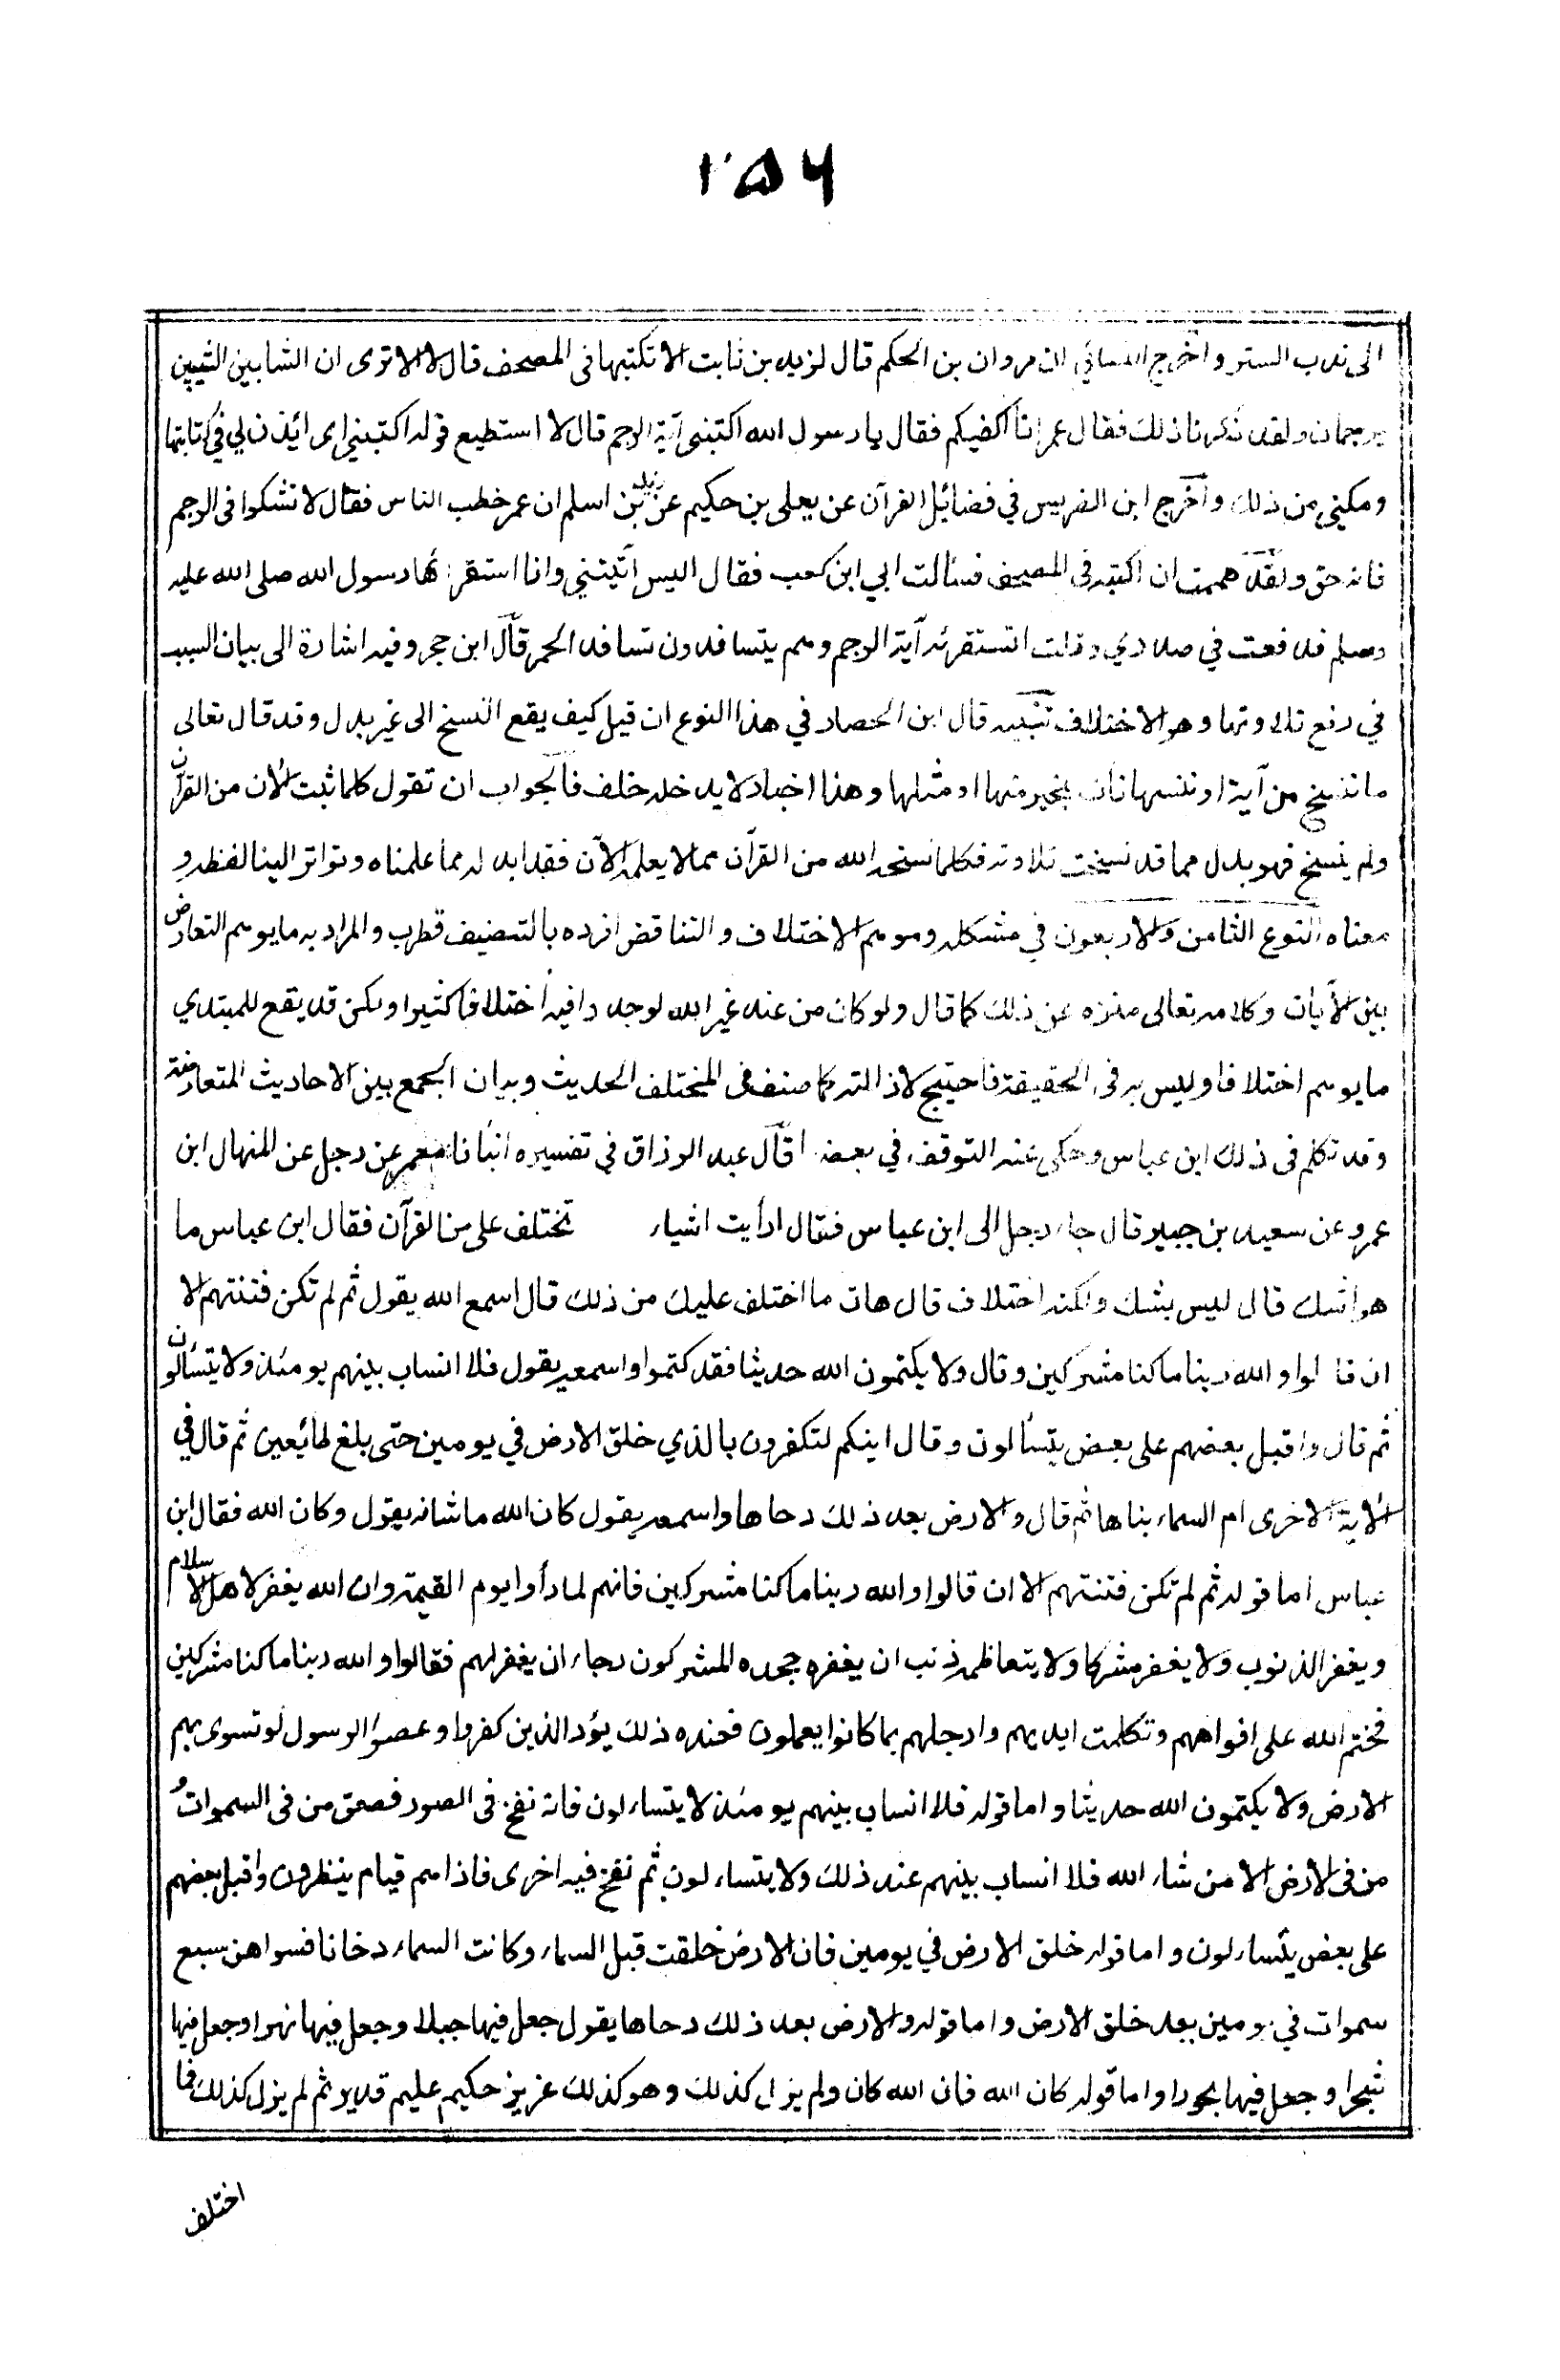 ٢٥٦
الى ندب الستر واخرج النسائي ان مروان بن الحكم قال لزيد بن ثابت الا تكتبها فى المصحف قال لا الا ترى ان الشابين الثيبين
يرجمان ولقد ذكرنا ذلك فقال عمر انا اكفيكم فقال يا رسول الله اكتبنى آية الرجم قال لا استطيع قوله اكتبني اى ائذن لي في كتابتها
ومكنى من ذلك واخرج ابن الضريس في فضائل القرآن عن يعلى بن حكيم عن زيد بن اسلم ان عمر خطب الناس فقال لا تشكوا فى الرجم
فانه حق ولقد هممت ان اكتبه فى المصحف فسألت ابي ابن كعب فقال اليس اتيتني وانا استقرئها رسول الله صلى الله عليه
وسلم فدفعت في صدري وقلت اتستقرئه آية الرجم وهم يتسافدون تسافد الحمر قال ابن حجر وفيه اشارة الى بيان السبب
في رفع تلاوتها وهو الاختلاف تنبيه قال ابن الحصار في هذا النوع ان قيل كيف يقع النسخ الى غير بدل وقد قال تعالى
ما ننسخ من آية او ننسها نات بخير منها او مثلها وهذا اخبار لا يدخله خلف فالجواب ان تقول كلما ثبت الان من القرآن
ولم ينسخ فهو بدل مما قد نسخت تلاوته فكلما نسخه الله من القرآن مما لا يعلمه الآن فقد ابدله مما علمناه وتواتر الينا لفظه و
معناه النوع الثامن والاربعون في مشكله وموهم الاختلاف والتناقض افرده بالتصنيف قطرب والمراد به ما يوهم التعارض
بين الآيات وكلامه تعالى منزه عن ذلك كما قال ولو كان من عند غير الله لوجدوا فيه اختلافا كثيرا ولكن قد يقع للمبتدي
ما يوهم اختلافا وليس به فى الحقيقة فاحتيج لازالته كما صنف فى المختلف الحديث وبيان الجمع بين الاحاديث المتعارضة
وقد تكلم فى ذلك ابن عباس وحكى عنه التوقف في بعضها قال عبد الرزاق في تفسيره انبأنا معمر عن رجل عن المنهال ابن
عمرو عن سعيد بن جبير قال جاء رجل الى ابن عباس فقال ارأيت اشياء تختلف على من القرآن فقال ابن عباس ما
هو اشك قال ليس بشك ولكنه اختلاف قال هات ما اختلف عليك من ذلك قال اسمع الله يقول ثم لم تكن فتنتهم الا
ان قالوا والله ربنا ما كنا مشركين وقال ولا يكتمون الله حديثا فقد كتموا واسمعه يقول فلا انساب بينهم يومئذ ولا يتسألون
ثم قال واقبل بعضهم على بعض يتسألون وقال اينكم لتكفرون بالذي خلق الارض في يومين حتى بلغ طائعين ثم قال في
الاية الاخرى ام السماء بناها ثم قال والارض بعد ذلك دحاها واسمعه يقول كان الله ما شانه يقول وكان الله فقال ابن
عباس اما قوله ثم لم تكن فتنتهم الا ان قالوا والله ربنا ما كنا مشركين فانهم لما رأوا يوم القيمة وان الله يغفر لاهل الاسلام
ويغفر الذنوب ولا يغفر مشركا ولا يتعاظمه ذنب ان يغفره جحده المشركون رجاء ان يغفر لهم فقالوا والله ربنا ما كنا مشركين
فختم الله على افواههم وتكلمت ايديهم وارجلهم بما كانوا يعملون فعنده ذلك يؤد الذين كفروا وعصوا الرسول لو تسوى بهم
الارض ولا يكتمون الله حديثا واما قوله فلا انساب بينهم يومئذ لا يتساءلون فانه نفخ فى الصور فصعق من فى السموات و
من فى الارض الا من شاء الله فلا انساب بينهم عند ذلك ولا يتساءلون ثم نفخ فيه اخرى فاذا هم قيام ينظرون واقبل بعضهم
على بعض يتساءلون واما قوله خلق الارض في يومين فان الارض خلقت قبل السماء وكانت السماء دخانا فسواهن سبع
سموات في يومين بعد خلق الارض واما قوله والارض بعد ذلك دحاها يقول جعل فيها جبلا وجعل فيها نهرا وجعل فيها
شجرا وجعل فيها بحورا واما قوله كان الله فان الله كان ولم يزل كذلك وهو كذلك عزيز حكيم عليم قدير ثم لم يزل كذلك فما
اختلف